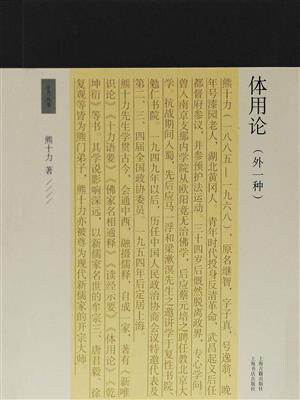 体用论
（外一种）
上海古籍出版社
上海书店出版社
熊十力（一八八五—一九六八），原名继智，字子真，号逸翁，晚
年号漆园老人，湖北黄冈人。青年时代投身反清革命，武昌起义后任
都督府参议，并参预护法运动。三十四岁后慨然脱离政界，专心问学，
曾入南京支那内学院从欧阳竟无治佛学，后应蔡元培之聘任教北京大
学。抗战期间入蜀，先后应马一浮和梁漱溟先生之邀讲学于复性书院、
勉仁书院。一九四九年以后，历任中国人民政治协商会议特邀代表及
第二、三、四届全国政协委员。一九五四年后定居上海。
熊十力先生学贯古今，会通中西，融摄儒释，自成一家，著有《新唯
识论》《十力语要》《佛家名相通释》《读经示要》《体用论》《乾
坤衍》等书。其学说影响深远，以新儒家名世的牟宗三、唐君毅、徐
复观等皆为熊门弟子，熊十力亦被尊为现代新儒家的开宗大师。
熊十力 著